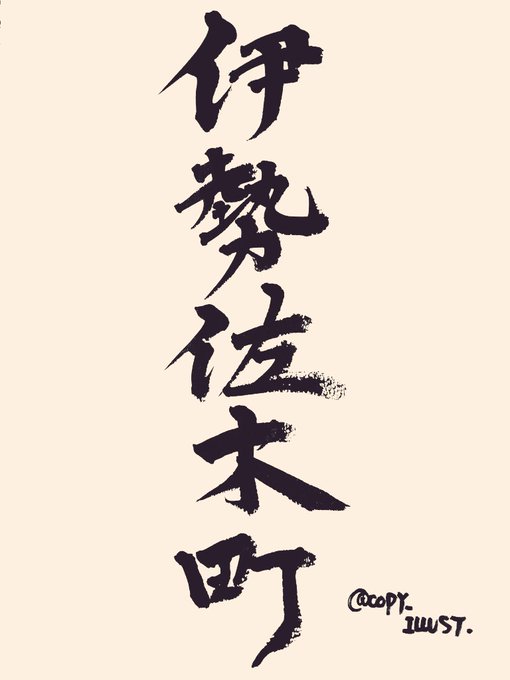 伊勢佐木町
@COPY_
ILLUST.